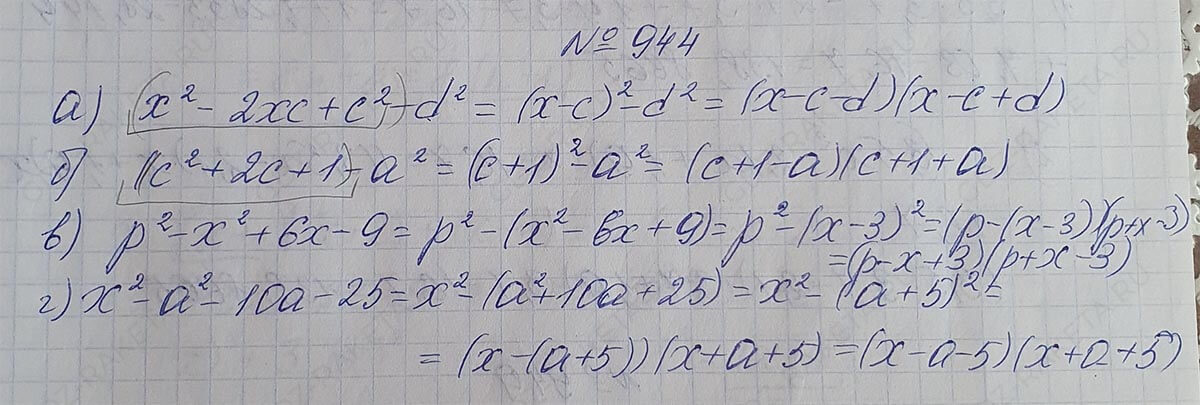 № 944
а) (x² - 2xc + c²) - d² = (x-c)² - d² = (x-c-d)(x-c+d)
б) (c² + 2c + 1) - a² = (c+1)² - a² = (c+1-a)(c+1+a)
в) p² - x² + 6x - 9 = p² - (x² - 6x + 9) = p² - (x-3)² = (p-(x-3)(p+x-3)
= (p-x+3)(p+x-3)
г) x² - a² - 10a - 25 = x² - (a² + 10a + 25) = x² - (a+5)² =
= (x-(a+5))(x+a+5) = (x-a-5)(x+a+5)